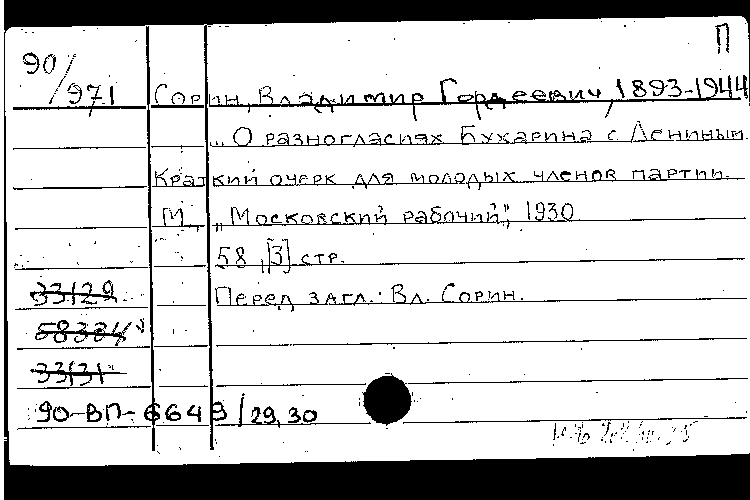 П
90/971
Сорин, Владимир Гордеевич, 1893-1944
„О разногласиях Бухарина с Лениным.
Краткий очерк для молодых членов партии.
М., „Московский рабочий", 1930
58, [3] стр.
33129
Перед загл.: Вл. Сорин.
58384
33131
90-ВП-6649/29,30